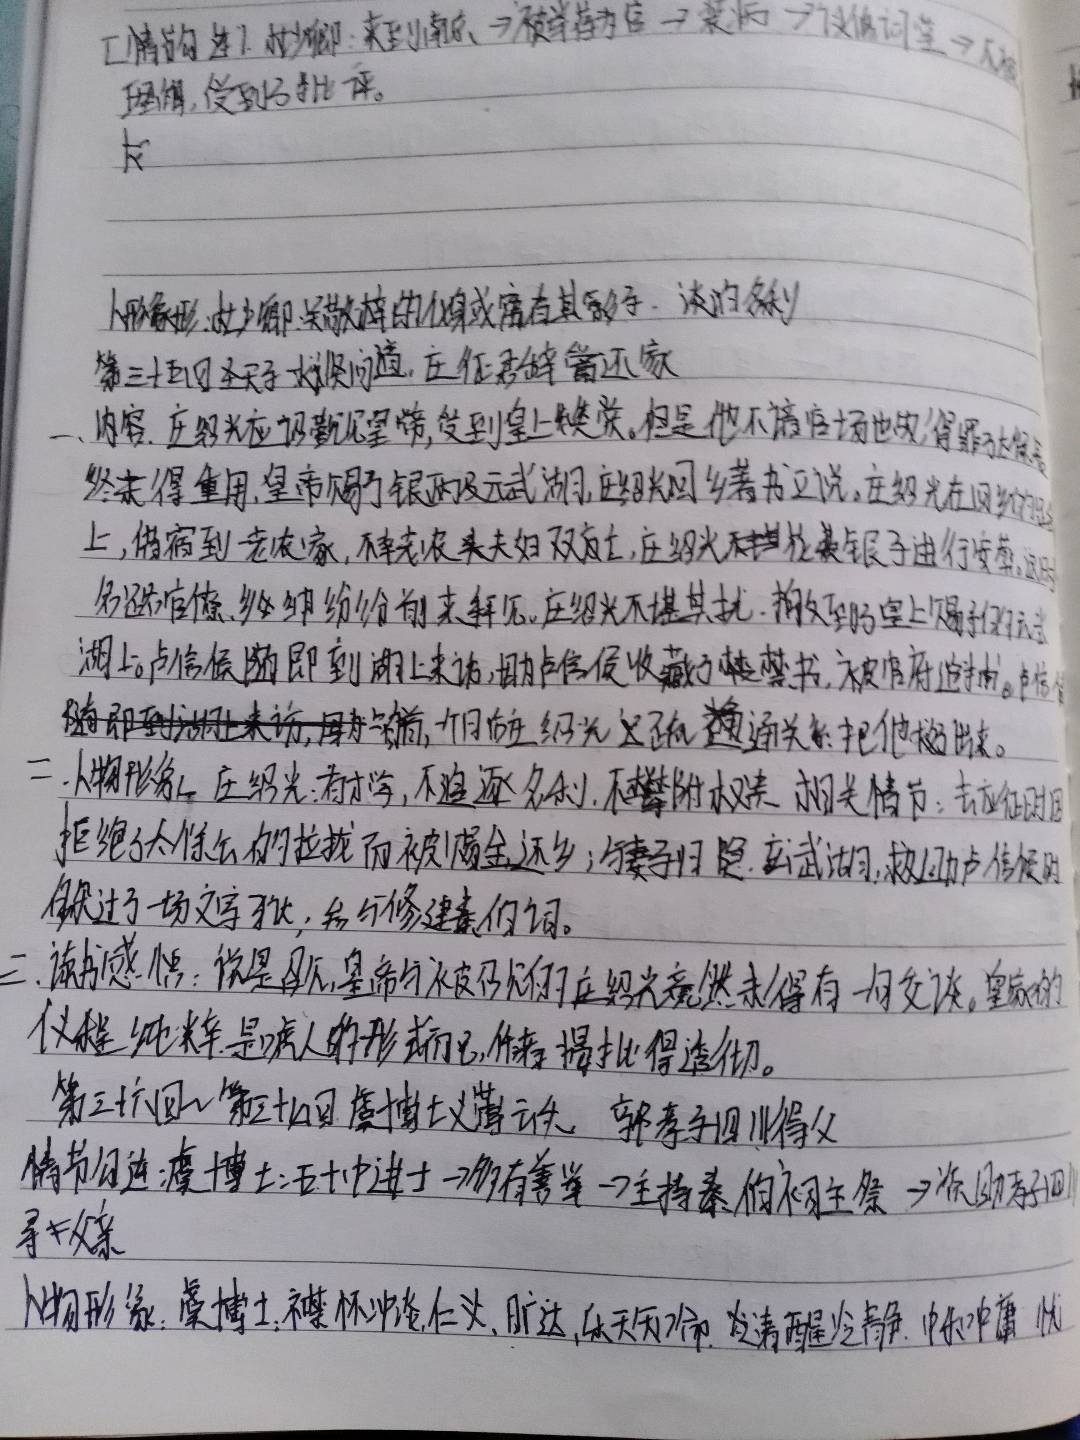 情节勾连：杜少卿：来到南京→被举荐为官→装病→修祠堂→不被
理解，受到了批评。
人物形象：杜少卿：吴敬梓的化身或富有其影子．淡泊名利
第三十五回 圣天子求贤问道．庄征君辞爵还家
一、内容．庄绍光应诏觐见皇帝，受到皇上奖赏。但是他不谙官场世故，得罪了太保公
终未得重用，皇帝赐予银两及元武湖，庄绍光回乡著书立说。庄绍光在回乡的
上，借宿到一老农家，不幸老农夫妇双亡，庄绍光拿银子进行安葬。
官僚、乡绅纷纷前来拜见。庄绍光不堪其扰．搬至了皇上赐予的元武
湖上。卢信侯随即到湖上来访，因卢信侯收藏了禁书，被官府追捕。卢信侯
随即到湖上来访，庄绍光 通关系把他救出来。
二．人物形象。庄绍光：有才学，不追逐名利．不攀附权贵 相关情节：去应征时因
拒绝了太保公的拉拢而被赐金还乡；与妻子归隐．玄武湖，救助卢信侯时
躲过了一场文字狱；参与修建泰伯祠。
三．读书感悟：说是召见，皇帝与被召见的庄绍光竟然未得有一句交谈。皇家的
仪程纯粹是唬人的形式而已，作者揭批得透彻。
第三十六回～第三十七回 虞博士义薄云天 郭孝子四川得父
情节勾连：虞博士：五十中进士→多有善举→主持泰伯祠主祭→资助孝子四川
寻父亲
人物形象：虞博士：襟怀冲淡，仁义、旷达，乐天知命．清醒冷静．中和中庸